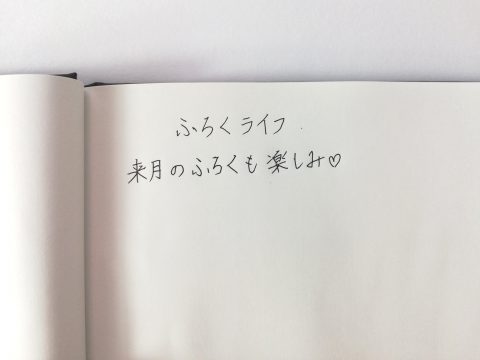 ふろくライフ
来月のふろくも楽しみ♡